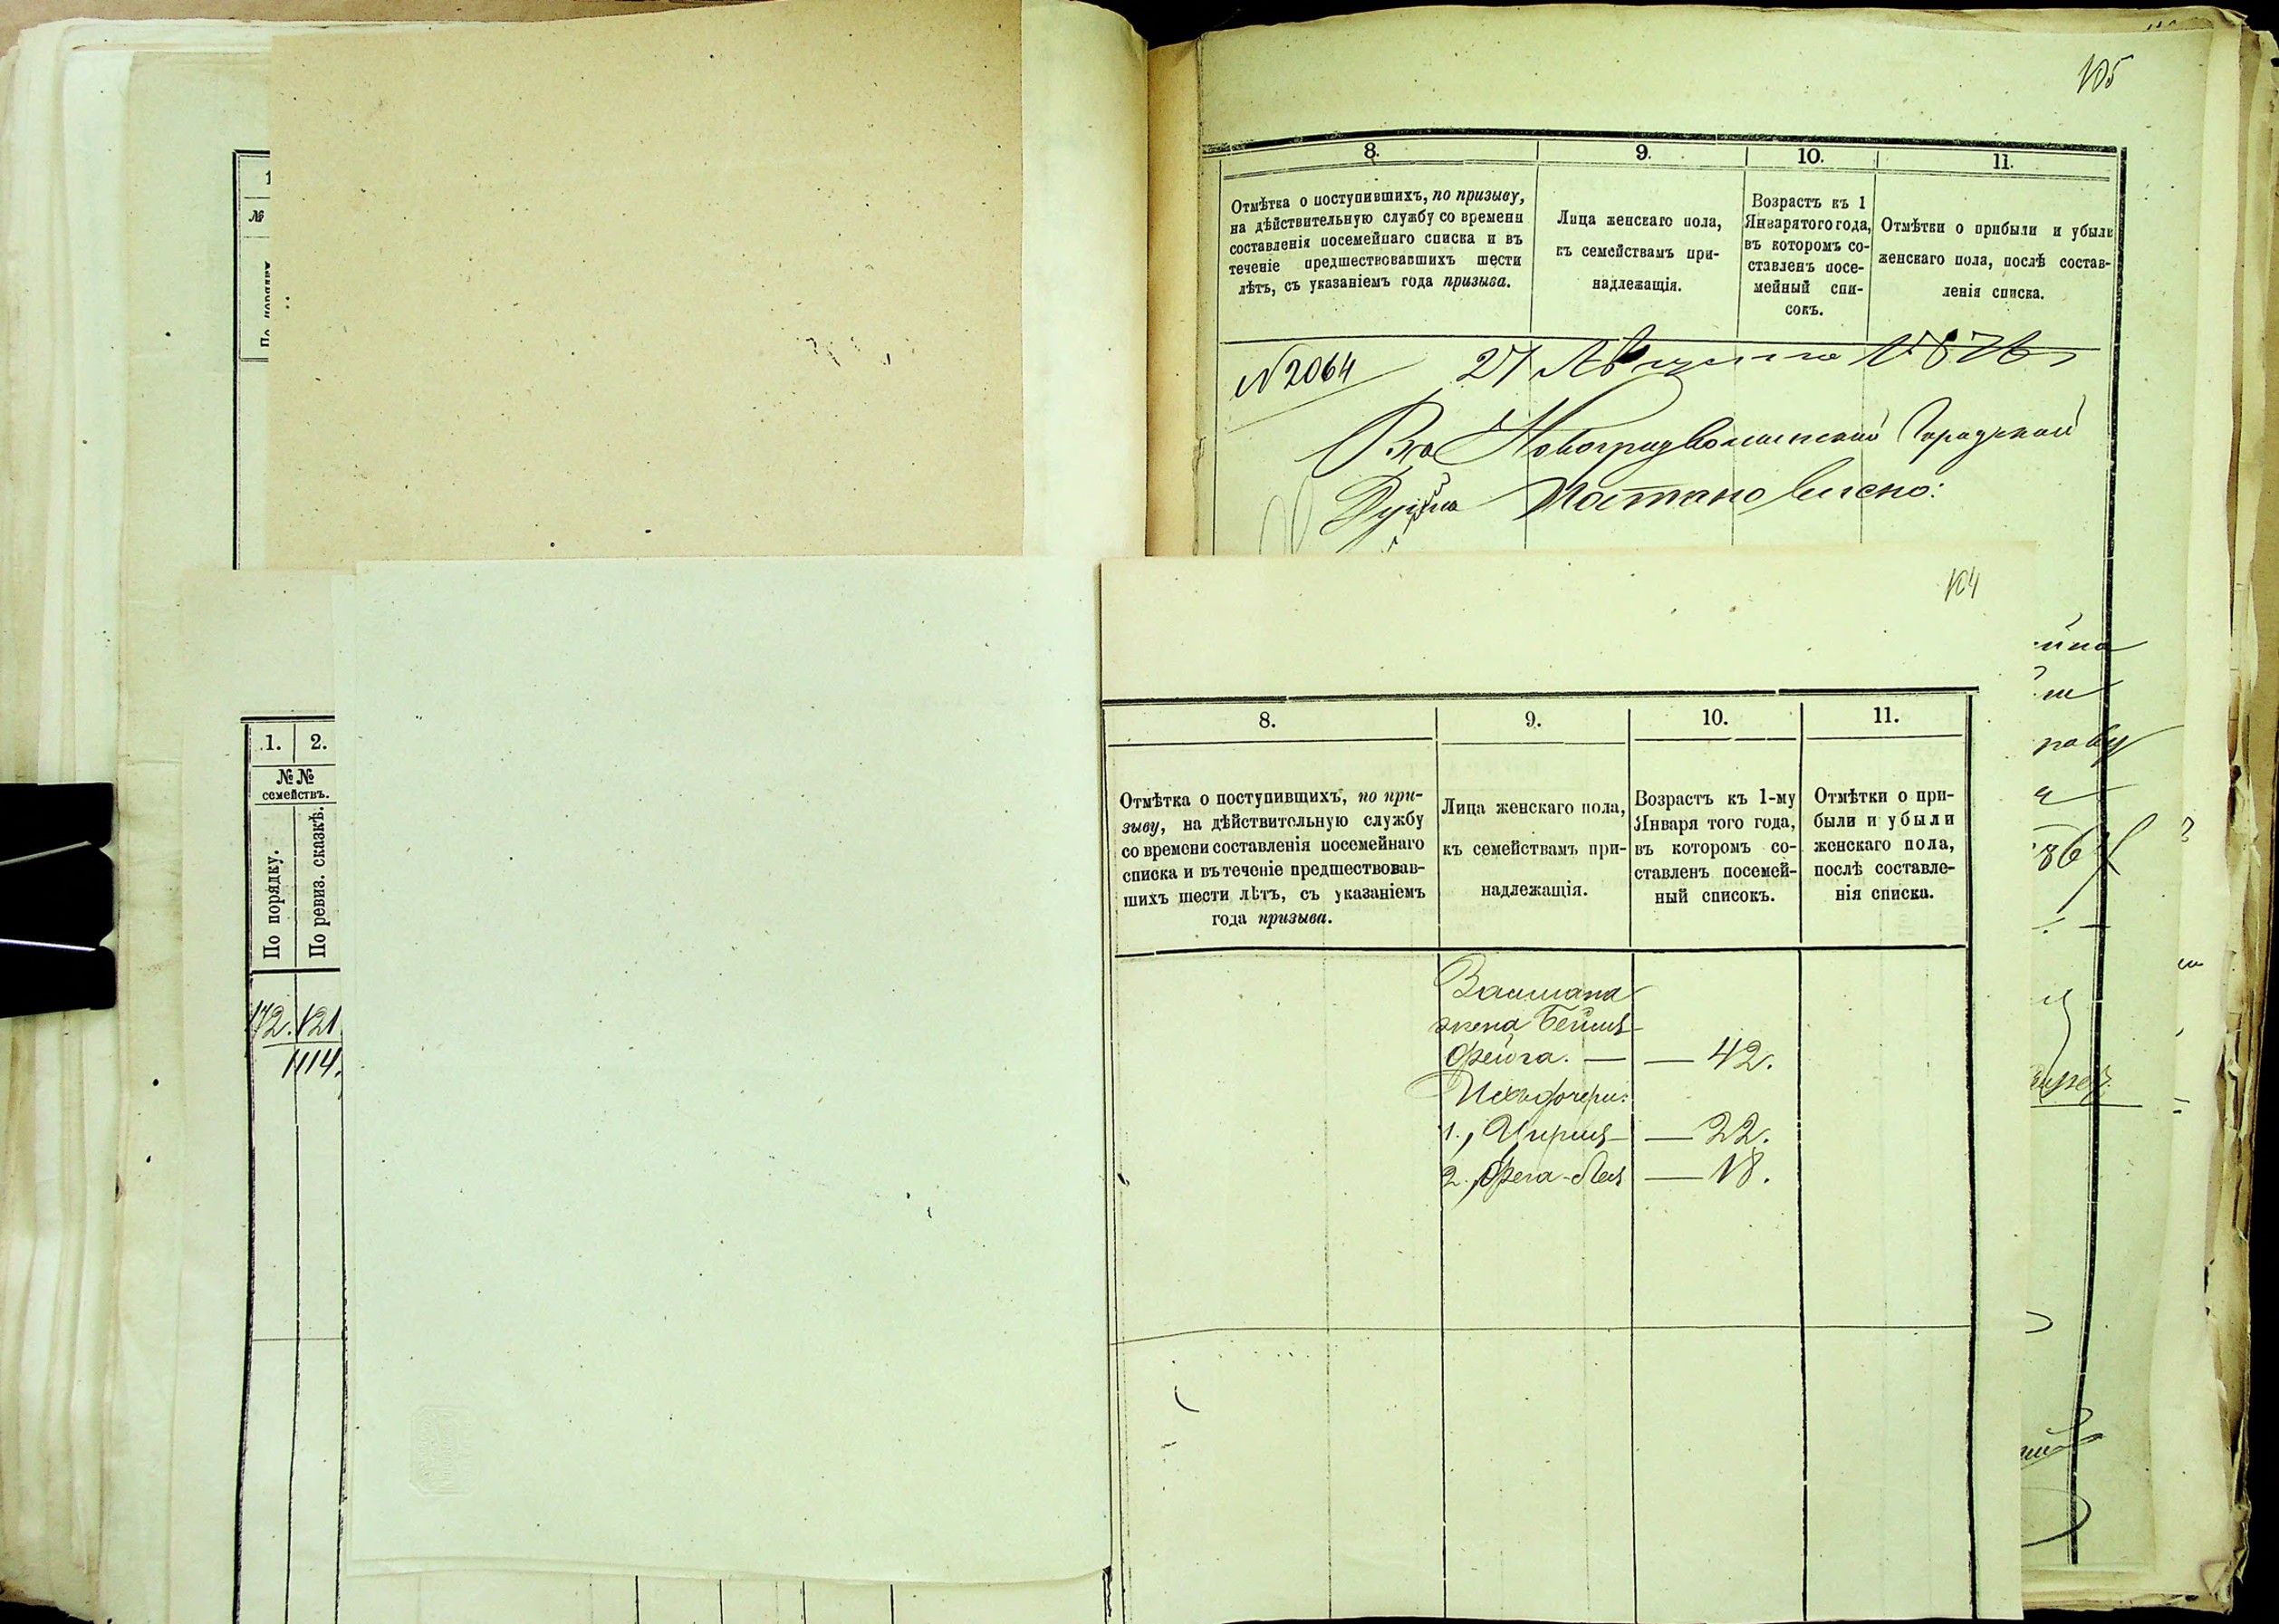 105
8. 9. 10. 11.
Отмѣтка о поступившихъ, по призыву,
на дѣйствительную службу со времени
составленія посемейнаго списка и въ
теченіе предшествовавшихъ шести
лѣтъ, съ указаніемъ года призыва.
Лица женскаго пола,
къ семействамъ при-
надлежащія.
Возрастъ къ 1
Января того года,
въ которомъ со-
ставленъ посе-
мейный спи-
сокъ.
Отмѣтки о прибыли и убыли
женскаго пола, послѣ состав-
ленія списка.
№
N 2064 27 Августа 1876
Новоградволынской Городской
Думѣ Постановлено:
104
1. 2.
№№
семействъ.
По порядку.
По ревиз. сказкѣ.
172. 121
1114.
8. 9. 10. 11.
Отмѣтка о поступивщихъ, по при-
зыву, на дѣйствительную службу
со времени составленія посемейнаго
списка и въ теченіе предшествовав-
шихъ шести лѣтъ, съ указаніемъ
года призыва.
Лица женскаго пола,
къ семействамъ при-
надлежащія.
Возрастъ къ 1-му
Января того года,
въ которомъ со-
ставленъ посемей-
ный списокъ.
Отмѣтки о при-
были и убыли
женскаго пола,
послѣ составле-
нія списка.
жена Бейля
Фейга. — — 42.
Ихъ дочери:
1., — 22.
2., — 18.